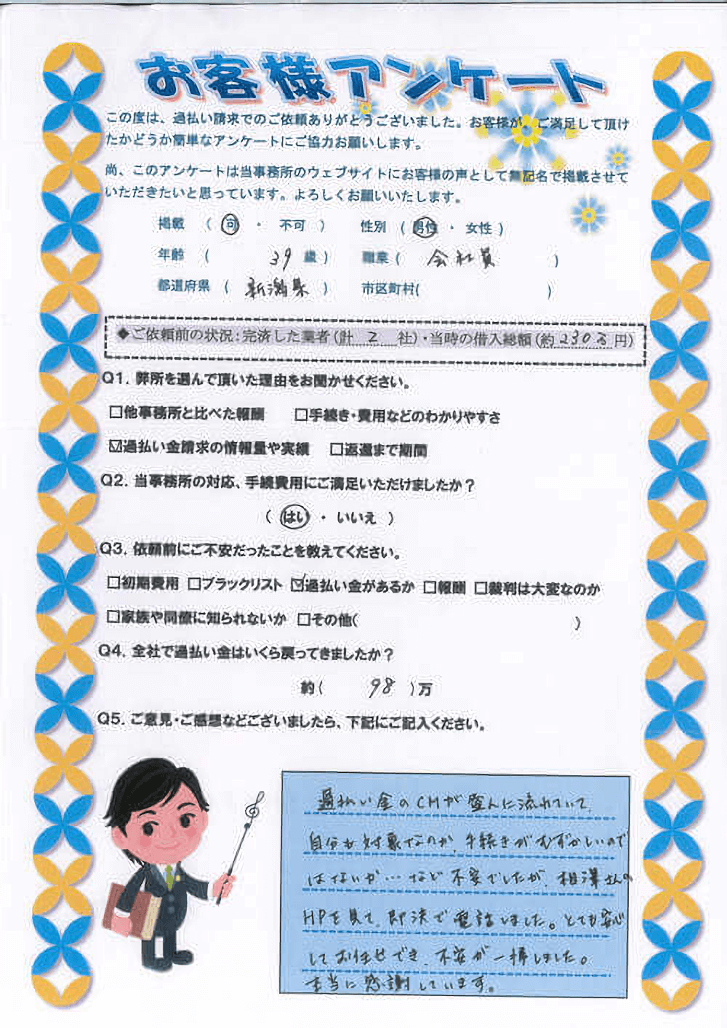 お客様アンケート
この度は、過払い請求でのご依頼ありがとうございました。お客様が、ご満足して頂け
たかどうか簡単なアンケートにご協力お願いします。
尚、このアンケートは当事務所のウェブサイトにお客様の声として無記名で掲載させて
いただきたいと思っています。よろしくお願いいたします。
掲載 ( 可 ・ 不可 ) 性別 ( 男性 ・ 女性 )
年齢 ( 39 歳 ) 職業 ( 会社員 )
都道府県 ( 新潟県 ) 市区町村( )
◆ご依頼前の状況:完済した業者(計 2 社)・当時の借入総額(約230万円)
Q1. 弊所を選んで頂いた理由をお聞かせください。
□他事務所と比べた報酬 □手続き・費用などのわかりやすさ
☑過払い金請求の情報量や実績 □返還まで期間
Q2. 当事務所の対応、手続費用にご満足いただけましたか?
( はい ・ いいえ )
Q3. 依頼前にご不安だったことを教えてください。
□初期費用 □ブラックリスト ☑過払い金があるか □報酬 □裁判は大変なのか
□家族や同僚に知られないか □その他( )
Q4. 全社で過払い金はいくら戻ってきましたか?
約( 98 )万
Q5. ご意見・ご感想などございましたら、下記にご記入ください。
過払い金のCMが盛んに流れていて、
自分も対象なのか、手続きがむずかしいので
はないか…など不安でしたが、相澤さんの
HPを見て、即決で電話しました。とても安心
してお任せでき、不安が一掃しました。
本当に感謝しています。